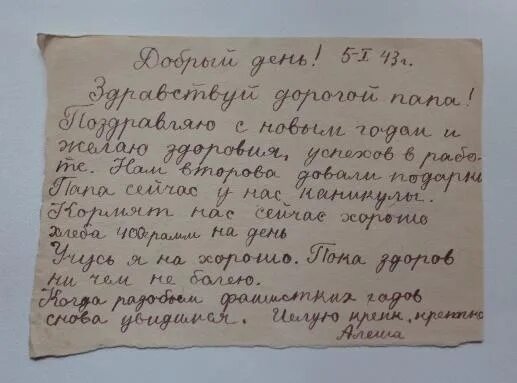 Добрый день! 5-I 43г.
Здравствуй дорогой папа!
Поздравляю с новым годом и
желаю здоровия, успехов в рабо-
те. Нам второва довали подарки
Папа сейчас у нас каникулы.
Кормят нас сейчас хорошо
хлеба 400грамм на день
Учусь я на хорошо. Пока здоров
ни чем не балею.
Когда радобьем фашистких гадов
снова увидимся. Целую крепк, крепко
Алеша